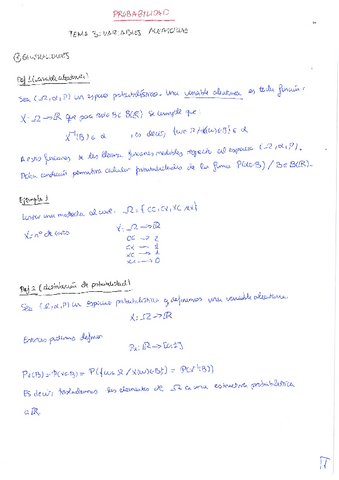 PROBABILIDAD
TEMA 3: VARIABLES ALEATORIAS
Def 1 (variable aleatoria)
Sea (Ω, α, P) un espacio probabilístico. Una variable aleatoria es toda función:
X: Ω → ℝ que para todo B ∈ B(ℝ) se cumple que:
X⁻¹(B) ∈ α, es decir, {w ∈ Ω / X(w) ∈ B} ∈ α
A estas funciones se les llama funciones medibles respecto al espacio (Ω, α, P).
Dicha condición permitirá calcular probabilidades de la forma P(X∈B) / B ∈ B(ℝ).
Ejemplo 1
Lanzar una moneda al aire. Ω: { CC, CX, XC, XX }
X = nº de caras
X: Ω → ℝ
CC → 2
CX → 1
XC → 1
XX → 0
Def 2 (distribución de probabilidad)
Sea (Ω, α, P) un espacio probabilístico y definimos una variable aleatoria.
X: Ω → ℝ
Entonces podemos definir
Px: ℝ → [0,1]
Px(B) = P(X∈B) = P({w∈Ω / X(w)∈B}) = P(X⁻¹(B))
Es decir, trasladamos los elementos de Ω a una estructura probabilística
a ℝ.